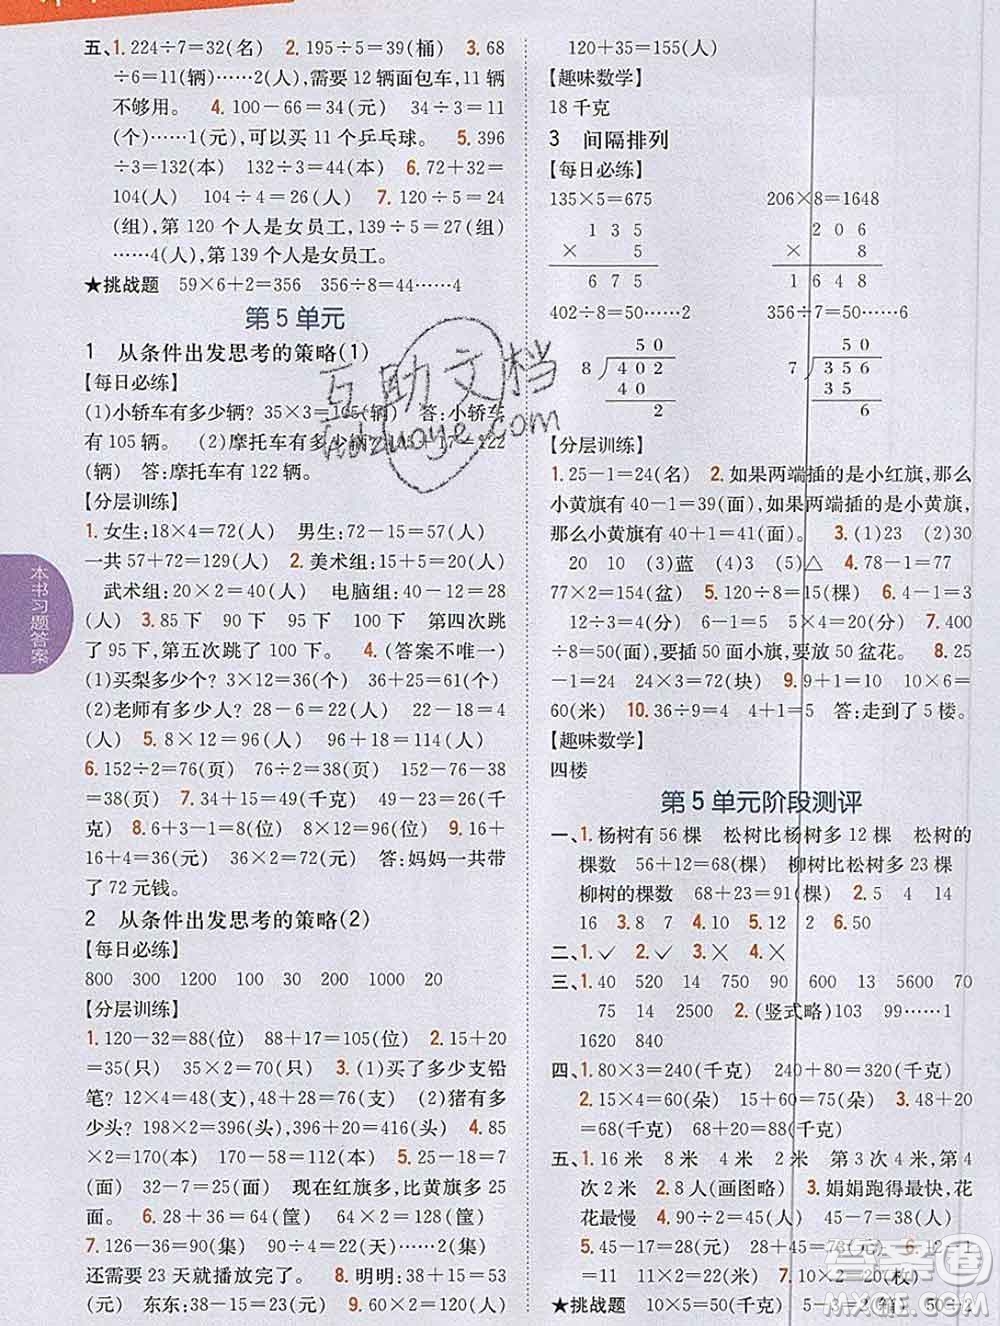 五、1. 224÷7=32(名) 2. 195÷5=39(桶) 3. 68
÷6=11(辆)……2(人),需要 12 辆面包车,11 辆
不够用。 4. 100-66=34(元) 34÷3=11
(个)……1(元),可以买 11 个乒乓球。 5. 396
÷3=132(本) 132÷3=44(本) 6. 72+32=
104(人) 104÷4=26(人) 7. 120÷5=24
(组),第 120 个人是女员工,139÷5=27(组)
……4(人),第 139 个人是女员工。
★挑战题 59×6+2=356 356÷8=44……4
第 5 单元
1 从条件出发思考的策略(1)
【每日必练】
(1)小轿车有多少辆? 35×3=105(辆) 答:小轿车
有 105 辆。 (2)摩托车有多少辆? 17=122
(辆) 答:摩托车有 122 辆。
【分层训练】
1. 女生:18×4=72(人) 男生:72-15=57(人)
一共 57+72=129(人) 2. 美术组:15+5=20(人)
武术组:20×2=40(人) 电脑组:40-12=28
(人) 3. 85下 90 下 95 下 100 下 第四次跳
了 95 下,第五次跳了 100 下。 4. (答案不唯一)
(1)买梨多少个? 3×12=36(个) 36+25=61(个)
(2)老师有多少人? 28-6=22(人) 22-18=4
(人) 5. 8×12=96(个) 96+14=110(个)
6. 152÷2=76(页) 76÷2=38(页) 152÷2÷2
=38(页) 7. 34+15=49(千克) 49×2=98(千
克) 8. 6+3-1=8(位) 8×12=96(位) 9. 16+
16+4=36(元) 36×2=72(元) 答:妈妈一共带
了 72 元钱。
2 从条件出发思考的策略(2)
【每日必练】
800 300 1200 100 30 200 1000 20
【分层训练】
1. 120-32=88(位) 88+17=105(位) 2. 15+20
=35(只) 35×2=70(只) 3. (1)买了多少支铅
笔? 12×4=48(支),48+24=72(支) (2)猪有多
少头? 198×2=396(头),396+4=400(头) 4. 85
×2=170(本) 170-58=112(本) 5. 25+7=32
(面) 32-7=25(面) 现在红旗多,比黄旗多 25
面。 6. 28+36=64(筐) 64×2=128(筐)
7. 126-36=90(集) 90÷4=22(天)……2(集)
还需要 23 天就播放完了。 8. 明明:38+15=53
(元) 东东:38-19=19(元) 9. 60×2=120(人)
120+35=155(人)
【趣味数学】
18 千克
3 间隔排列
【每日必练】
135×5=675 206×8=1648
1 3 5 2 0 6
× 5 × 8
6 7 5 1 6 4 8
402÷8=50……2 356÷7=50……6
5 0 5 0
8 4 0 2 7 3 5 6
4 0 3 5
2 6
【分层训练】
1. 25-1=24(名) 2. 如果两端插的是小红旗,那么
小黄旗有 40-1=39(面),如果两端插的是小黄旗,
那么小黄旗有 40+1=41(面)。 3. (1)23 (2)30
20 10 (3)蓝 (4)红 (5)△ 4. 77+77=154或
77×2=154(盆) 5. 120÷8=15(棵) 6. 48÷
12÷3=4(分) 6-1=5(次) 5×4=20(分) 7. 400
÷8=50(面),要插 50 面小旗,要放 50 盆花。 8. 25
-1=24 24×3=72(块) 9. 11-1=10 10×6=
60(米) 10. 36÷9=4 4+1=5 答:走到了 5 楼。
【趣味数学】
四楼
第 5 单元阶段测评
一、1. 杨树有 56 棵 松树比杨树多 12 棵 松树的
棵数 56+12=68(棵) 柳树比松树多 23 棵
柳树的棵数 68+23=91(棵) 2. 5 4 14
16 3. 8 7 4. 11 9 5. 12 2 6. 50
二、1. ✓ 2. ✓ 3. ✗ 4. ✗
三、1. 40 520 14 250 90 600 13 5600 70
75 14 2500 2. (竖式略)103 99……1
1620 840
四、1. 80×3=240(千克) 240+80=320(千克)
2. 15×4=60(朵) 15+60=75(朵) 3. 48+20
=68(千克) 68+20=88(千克)
五、1. 16 米 8 米 4 米 2 米 第 3 次 4 米,第 4
次 2 米 2. 8人(画图略) 3. 娟娟跑得最快,花
花最慢 4. 90÷2=45(人) 90÷45=2(人)
5. 45-17=28(元) 28+45=73(元) 6. 12-1
=11 11×2=22(千米) 7. 10×2=20(枚)
★挑战题 10×5=50(千克) 5-3=2(箱) 50÷2
本书习题答案
互助文档
hdzuoye.com
答案圈
MXQE.COM